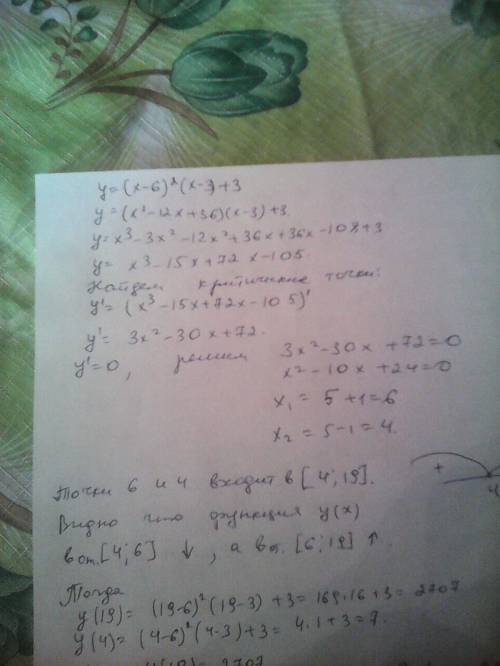 y=(x-6)²(x-3)+3
y=(x²-12x+36)(x-3)+3
y=x³-3x²-12x²+36x+36x-108+3
y= x³-15x+72x-105
Найдем критические точки:
y'=(x³-15x+72x-105)'
y'= 3x²-30x+72.
y'=0, решим 3x²-30x+72=0
x²-10x+24=0
x₁= 5+1=6
x₂=5-1=4.
Точки 6 и 4 входит в [4;19].
+
4
Видно что функция y(x)
в от.[4;6] ↓, а в от. [6;19] ↑.
Тогда
y(19)= (19-6)²(19-3)+3=169·16+3=2707
y(4)= (4-6)²(4-3)+3=4·1+3=7.
2707